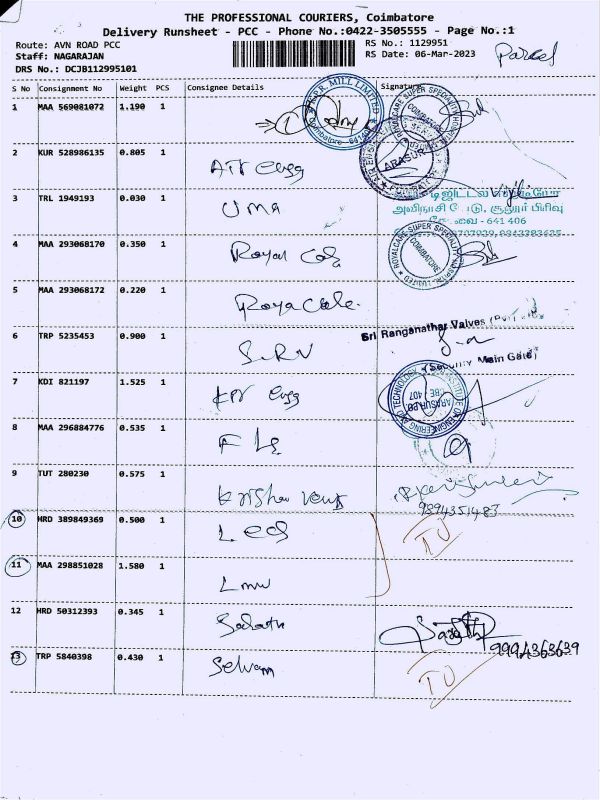 THE PROFESSIONAL COURIERS, Coimbatore
Delivery Runsheet - PCC - Phone No.:0422-3505555 - Page No.:1
Route: AVN ROAD PCC
RS No.: 1129951
Staff: NAGARAJAN
RS Date: 06-Mar-2023
Parcel
DRS No.: DCJB112995101
S No Consignment No Weight PCS Consignee Details Signature
1 MAA 569081072 1.190 1
2 KUR 528986135 0.805 1 Air Engg
3 TRL 1949193 0.030 1 UMA
டிஜிட்டல்
அவிநாசி ரோடு, சூலூர் பிரிவு
கோவை - 641 406
4 MAA 293068170 0.350 1 Royal Care
ROYALCARE SUPER SPECIALITY COIMBATORE
5 MAA 293068172 0.220 1 Royal Care
6 TRP 5235453 0.900 1 S.R.V
Sri Ranganathar Valves
(Security Main Gate)
7 KDI 821197 1.525 1 KPR Engg
8 MAA 296884776 0.535 1
9 TUT 280230 0.575 1
9894351483
10 HRD 389849369 0.500 1
11 MAA 298851028 1.580 1 LMW
12 HRD 50312393 0.345 1
9994363639
13 TRP 5840398 0.430 1 Selvam